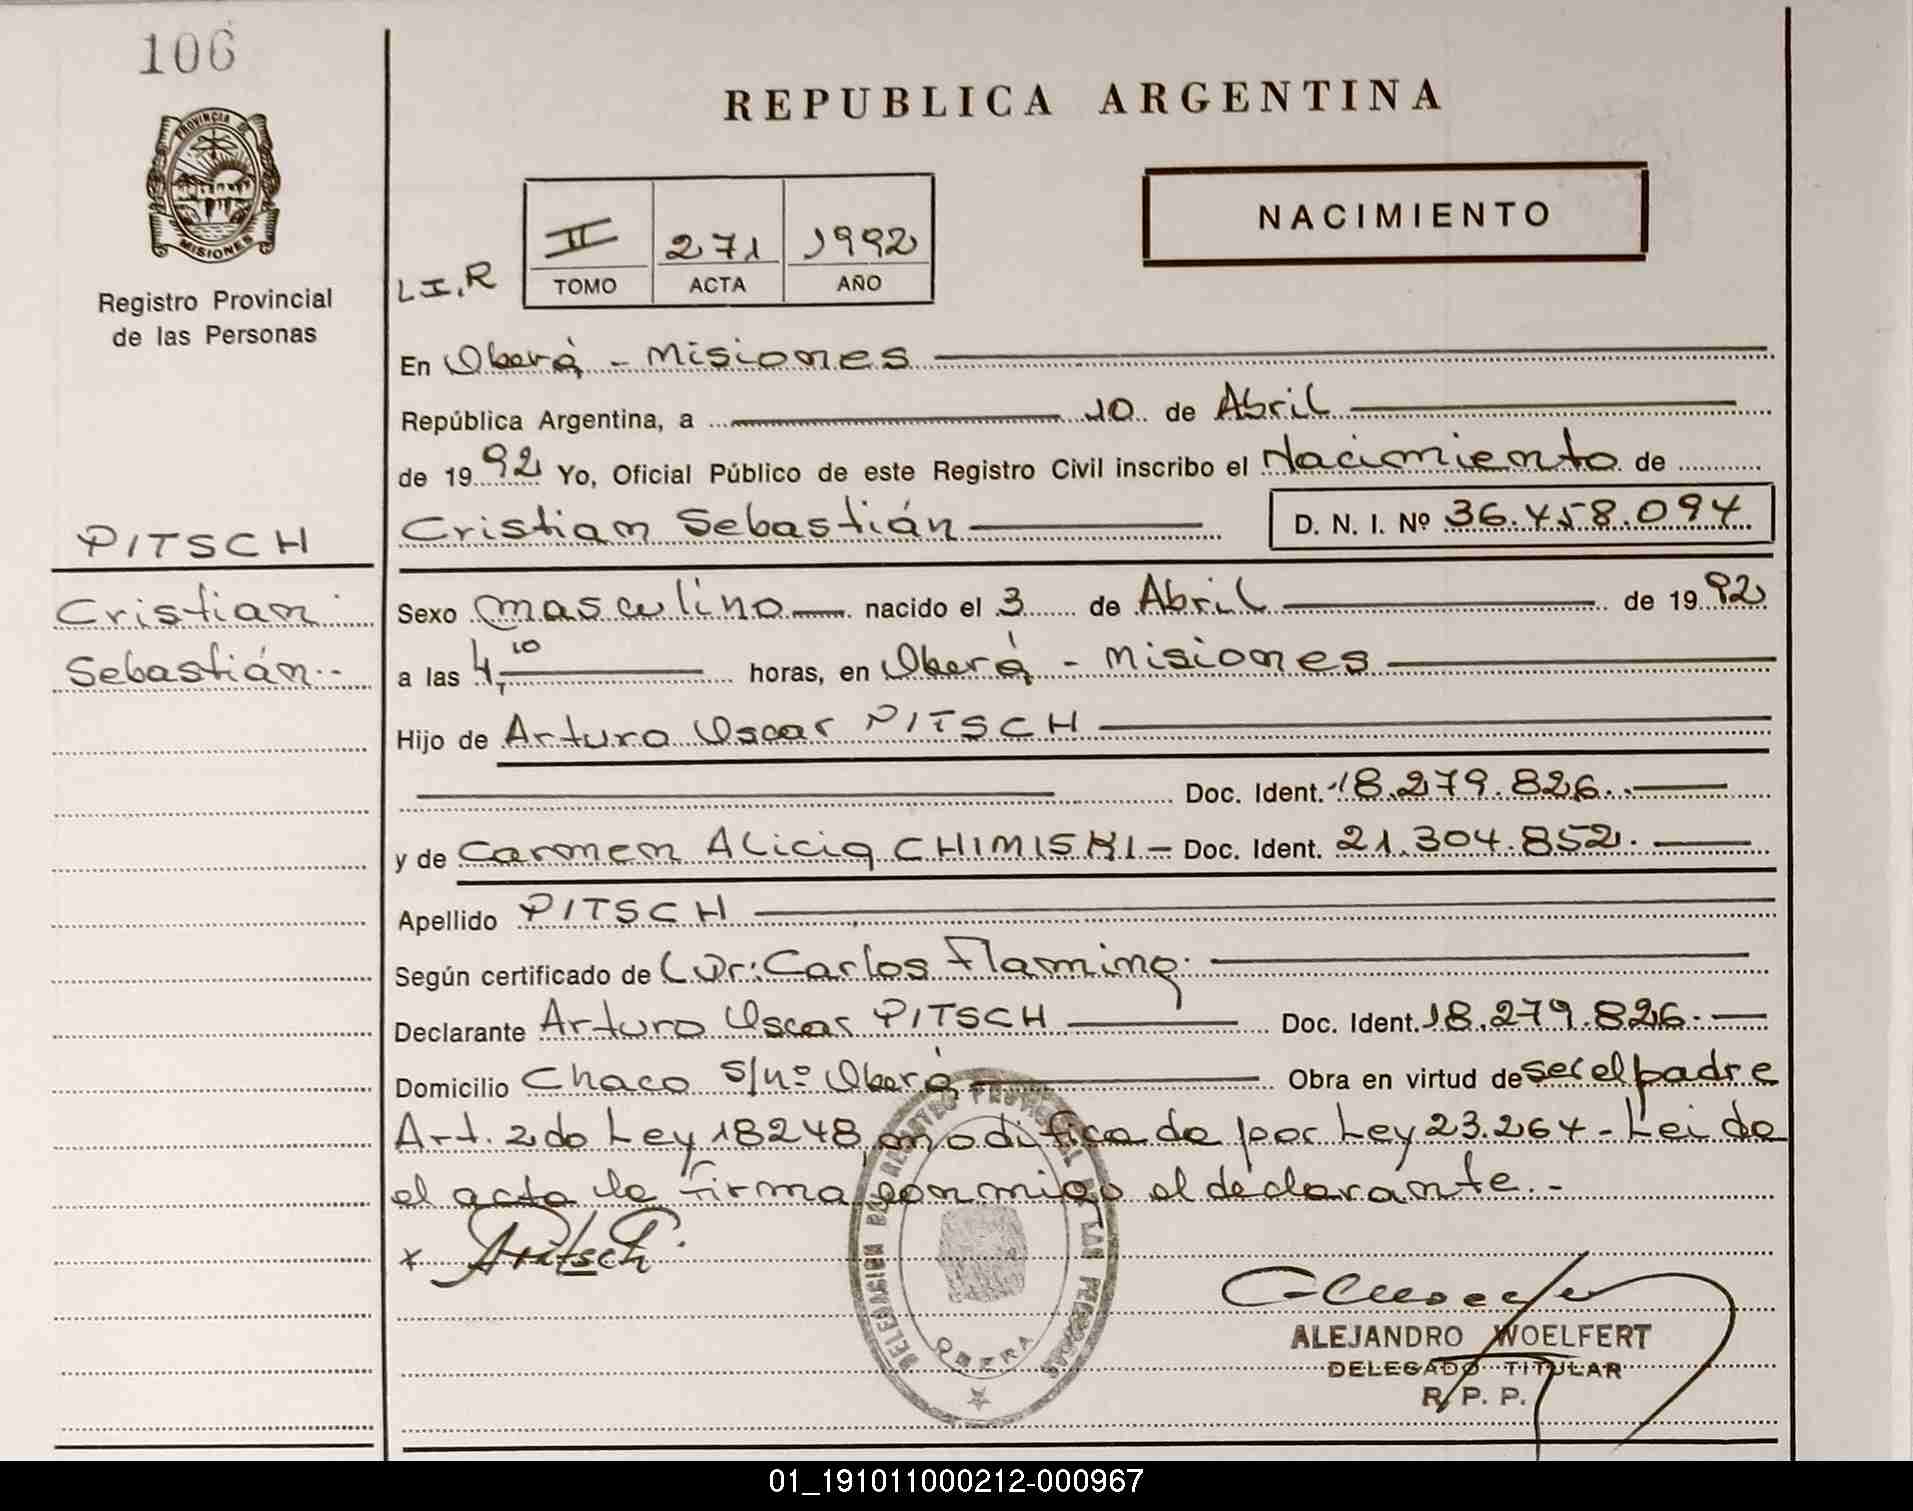 106
PROVINCIA DE
MISIONES
Registro Provincial
de las Personas
REPUBLICA ARGENTINA
NACIMIENTO
L.I.R
II 271 1992
TOMO ACTA AÑO
En Oberá - Misiones
República Argentina, a 10 de Abril
de 1992 Yo, Oficial Público de este Registro Civil inscribo el Nacimiento de
Cristian Sebastián D. N. I. Nº 36.458.094
PITSCH
Cristian
Sebastián.-
Sexo masculino nacido el 3 de Abril de 1992
a las 4,10 horas, en Oberá - Misiones
Hijo de Arturo Oscar PITSCH
Doc. Ident. 18.279.826.
y de Carmen Alicia CHIMISKI - Doc. Ident. 21.304.852.
Apellido PITSCH
Según certificado de Dr: Carlos Flaming.
Declarante Arturo Oscar PITSCH Doc. Ident. 18.279.826.
Domicilio Chaco s/nº Oberá Obra en virtud de ser el padre
Art. 2do Ley 18248, modificada por Ley 23.264 - Leida
el acta la firma conmigo el declarante.-
x APitsch.
DELEGACION DEL REGISTRO PROVINCIAL DE LAS PERSONAS
OBERA
ALEJANDRO WOELFERT
DELEGADO TITULAR
R. P. P.
01_191011000212-000967